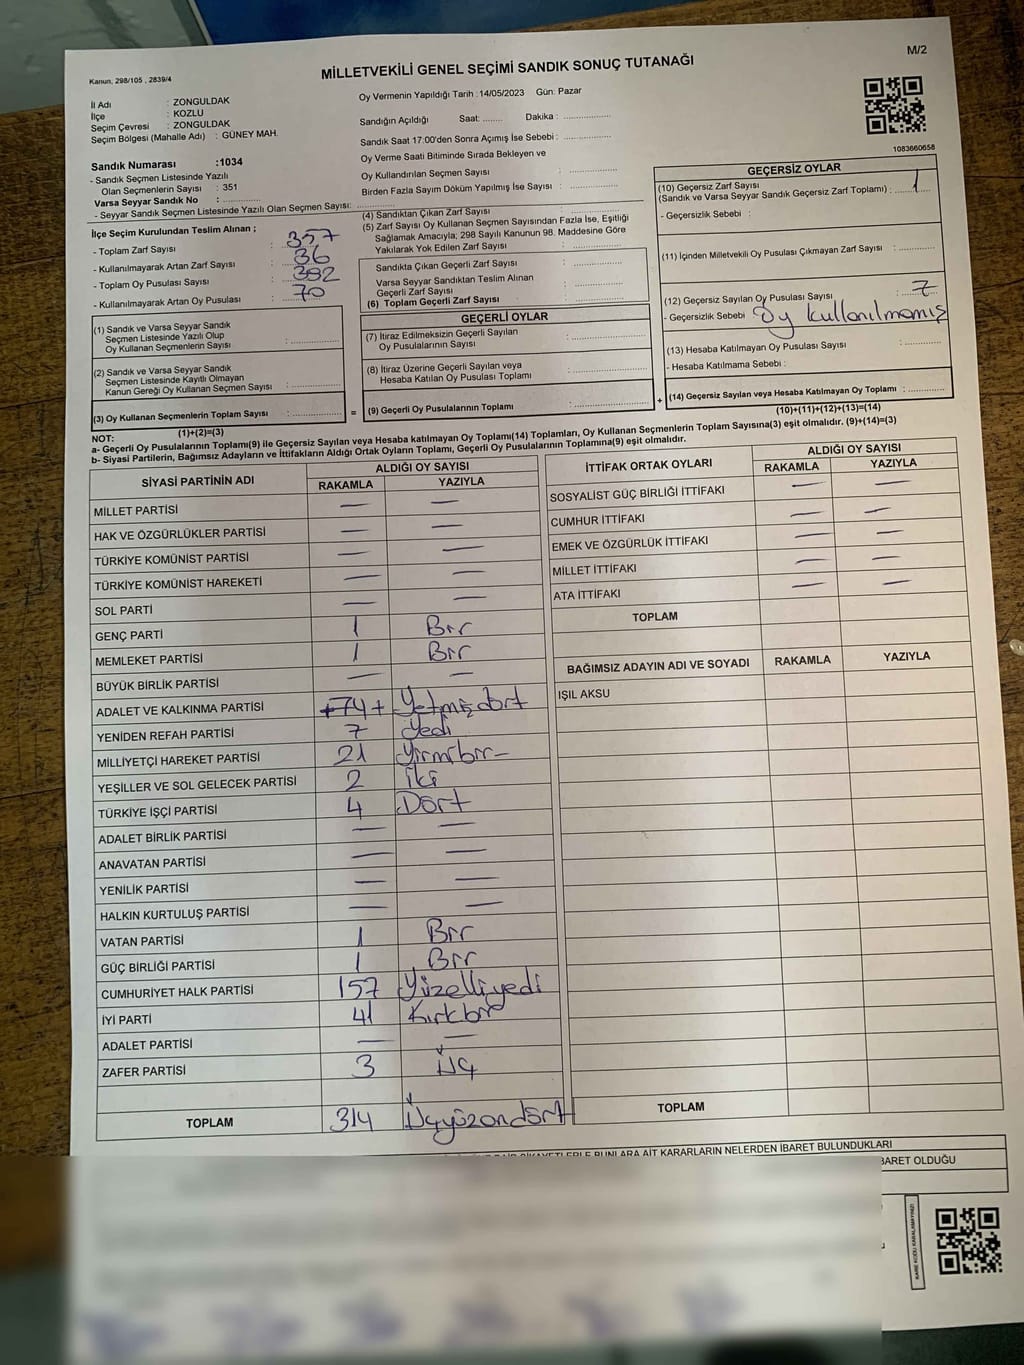 M/2
Kanun, 298/105 , 2839/4
MİLLETVEKİLİ GENEL SEÇİMİ SANDIK SONUÇ TUTANAĞI
İl Adı : ZONGULDAK
İlçe : KOZLU
Seçim Çevresi : ZONGULDAK
Seçim Bölgesi (Mahalle Adı) : GÜNEY MAH.
Oy Vermenin Yapıldığı Tarih : 14/05/2023 Gün: Pazar
Sandığın Açıldığı Saat: ........ Dakika : ................
Sandık Saat 17:00'den Sonra Açımış İse Sebebi : ................
Oy Verme Saati Bitiminde Sırada Bekleyen ve
Oy Kullandırılan Seçmen Sayısı : ................
Birden Fazla Sayım Döküm Yapılmış İse Sayısı : ................
1083660658
Sandık Numarası :1034
- Sandık Seçmen Listesinde Yazılı
Olan Seçmenlerin Sayısı : 351
Varsa Seyyar Sandık No : ................
- Seyyar Sandık Seçmen Listesinde Yazılı Olan Seçmen Sayısı: ................
İlçe Seçim Kurulundan Teslim Alınan ;
- Toplam Zarf Sayısı : 357
- Kullanılmayarak Artan Zarf Sayısı : 36
- Toplam Oy Pusulası Sayısı : 382
- Kullanılmayarak Artan Oy Pusulası : 70
(1) Sandık ve Varsa Seyyar Sandık
Seçmen Listesinde Yazılı Olup
Oy Kullanan Seçmenlerin Sayısı : ................
(2) Sandık ve Varsa Seyyar Sandık
Seçmen Listesinde Kayıtlı Olmayan
Kanun Gereği Oy Kullanan Seçmen Sayısı : ................
(3) Oy Kullanan Seçmenlerin Toplam Sayısı : ................
(1)+(2)=(3)
(4) Sandıktan Çıkan Zarf Sayısı : ................
(5) Zarf Sayısı Oy Kullanan Seçmen Sayısından Fazla İse, Eşitliği
Sağlamak Amacıyla; 298 Sayılı Kanunun 98. Maddesine Göre
Yakılarak Yok Edilen Zarf Sayısı : ................
Sandıkta Çıkan Geçerli Zarf Sayısı : ................
Varsa Seyyar Sandıktan Teslim Alınan
Geçerli Zarf Sayısı : ................
(6) Toplam Geçerli Zarf Sayısı : ................
GEÇERLİ OYLAR
(7) İtiraz Edilmeksizin Geçerli Sayılan
Oy Pusulalarının Sayısı : ................
(8) İtiraz Üzerine Geçerli Sayılan veya
Hesaba Katılan Oy Pusulası Toplamı : ................
= (9) Geçerli Oy Pusulalarının Toplamı : ................ +
GEÇERSİZ OYLAR
(10) Geçersiz Zarf Sayısı
(Sandık ve Varsa Seyyar Sandık Geçersiz Zarf Toplamı) : 1
- Geçersizlik Sebebi :
(11) İçinden Milletvekili Oy Pusulası Çıkmayan Zarf Sayısı : ................
(12) Geçersiz Sayılan Oy Pusulası Sayısı : 7
- Geçersizlik Sebebi : Oy kullanılmamış
(13) Hesaba Katılmayan Oy Pusulası Sayısı : ................
- Hesaba Katılmama Sebebi :
(14) Geçersiz Sayılan veya Hesaba Katılmayan Oy Toplamı : ................
(10)+(11)+(12)+(13)=(14)
NOT:
a- Geçerli Oy Pusulalarının Toplamı(9) ile Geçersiz Sayılan veya Hesaba katılmayan Oy Toplamı(14) Toplamları, Oy Kullanan Seçmenlerin Toplam Sayısına(3) eşit olmalıdır. (9)+(14)=(3)
b- Siyasi Partilerin, Bağımsız Adayların ve İttifakların Aldığı Ortak Oyların Toplamı, Geçerli Oy Pusulalarının Toplamına(9) eşit olmalıdır.
SİYASİ PARTİNİN ADI ALDIĞI OY SAYISI
RAKAMLA YAZIYLA
MİLLET PARTİSI — —
HAK VE ÖZGÜRLÜKLER PARTİSİ — —
TÜRKİYE KOMÜNİST PARTİSİ — —
TÜRKİYE KOMÜNİST HAREKETİ — —
SOL PARTİ — —
GENÇ PARTİ 1 Bir
MEMLEKET PARTİSİ 1 Bir
BÜYÜK BİRLİK PARTİSİ — —
ADALET VE KALKINMA PARTİSİ +74+ Yetmişdört
YENİDEN REFAH PARTİSİ 7 Yedi
MİLLİYETÇİ HAREKET PARTİSİ 21 Yirmibir-
YEŞİLLER VE SOL GELECEK PARTİSİ 2 İki
TÜRKİYE İŞÇİ PARTİSİ 4 Dört
ADALET BİRLİK PARTİSİ — —
ANAVATAN PARTİSİ — —
YENİLİK PARTİSİ — —
HALKIN KURTULUŞ PARTİSİ — —
VATAN PARTİSİ 1 Bir
GÜÇ BİRLİĞİ PARTİSİ 1 Bir
CUMHURİYET HALK PARTİSİ 157 Yüzelliyedi
İYİ PARTİ 41 Kırkbir
ADALET PARTİSİ — —
ZAFER PARTİSİ 3 Üç
TOPLAM 314 Üçyüzondört
İTTİFAK ORTAK OYLARI ALDIĞI OY SAYISI
RAKAMLA YAZIYLA
SOSYALİST GÜÇ BİRLİĞİ İTTİFAKI — —
CUMHUR İTTİFAKI — —
EMEK VE ÖZGÜRLÜK İTTİFAKI — —
MİLLET İTTİFAKI — —
ATA İTTİFAKI — —
TOPLAM
BAĞIMSIZ ADAYIN ADI VE SOYADI RAKAMLA YAZIYLA
IŞIL AKSU
TOPLAM
BUNLARA AİT KARARLARIN NELERDEN İBARET BULUNDUKLARI
OLDUĞU
KARE KODU KARALAMAYINIZ!